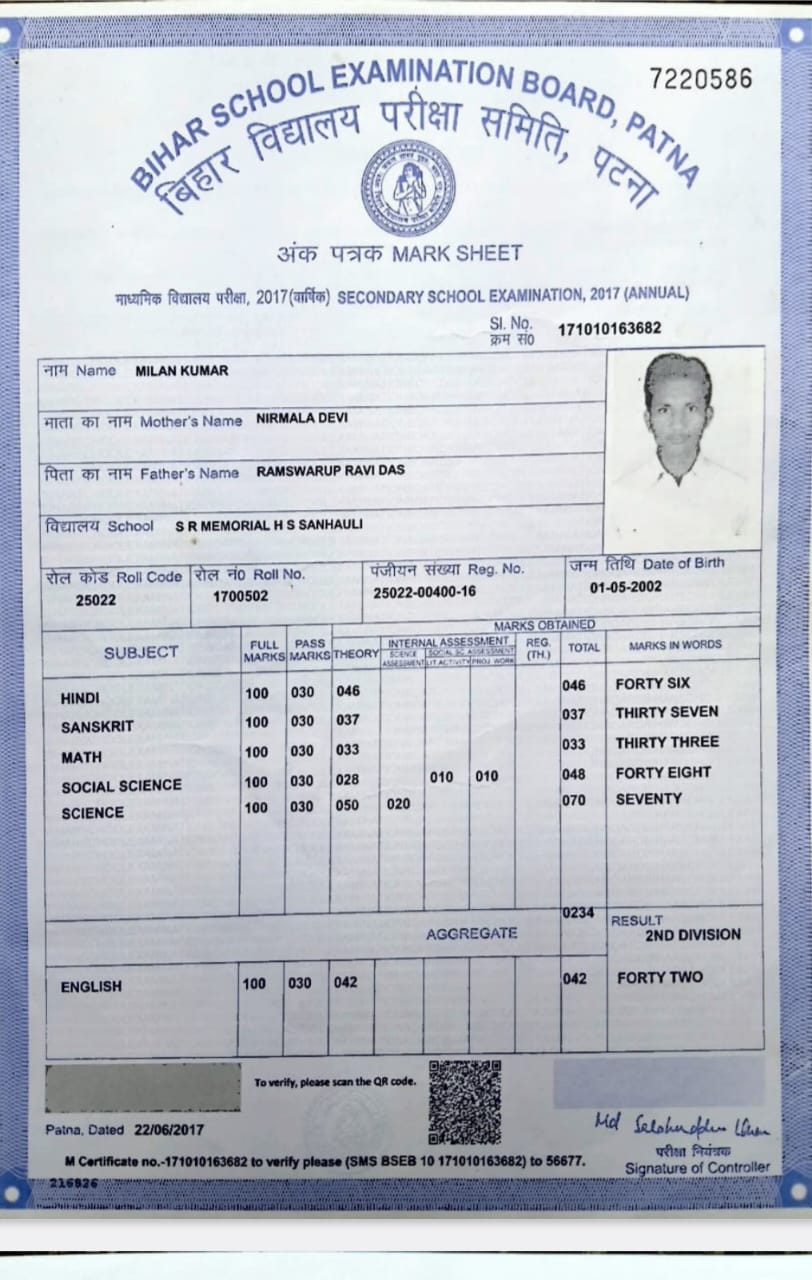 7220586
BIHAR SCHOOL EXAMINATION BOARD, PATNA
बिहार विद्यालय परीक्षा समिति, पटना
अंक पत्रक MARK SHEET
माध्यमिक विद्यालय परीक्षा, 2017(वार्षिक) SECONDARY SCHOOL EXAMINATION, 2017 (ANNUAL)
Sl. No. 171010163682
क्रम सं०
नाम Name MILAN KUMAR
माता का नाम Mother's Name NIRMALA DEVI
पिता का नाम Father's Name RAMSWARUP RAVI DAS
विद्यालय School S R MEMORIAL H S SANHAULI
रोल कोड Roll Code रोल नं० Roll No. पंजीयन संख्या Reg. No. जन्म तिथि Date of Birth
25022 1700502 25022-00400-16 01-05-2002
MARKS OBTAINED
SUBJECT FULL MARKS PASS MARKS THEORY INTERNAL ASSESSMENT REG. (TH.) TOTAL MARKS IN WORDS
SCIENCE ASSESSMENT SOCIAL SC ASSESSMENT
LIT ACTIVITY PROJ WORK
HINDI 100 030 046 046 FORTY SIX
SANSKRIT 100 030 037 037 THIRTY SEVEN
MATH 100 030 033 033 THIRTY THREE
SOCIAL SCIENCE 100 030 028 010 010 048 FORTY EIGHT
SCIENCE 100 030 050 020 070 SEVENTY
AGGREGATE 0234 RESULT
2ND DIVISION
ENGLISH 100 030 042 042 FORTY TWO
To verify, please scan the QR code.
Patna, Dated 22/06/2017
परीक्षा नियंत्रक
Signature of Controller
M Certificate no.-171010163682 to verify please (SMS BSEB 10 171010163682) to 56677.
216826